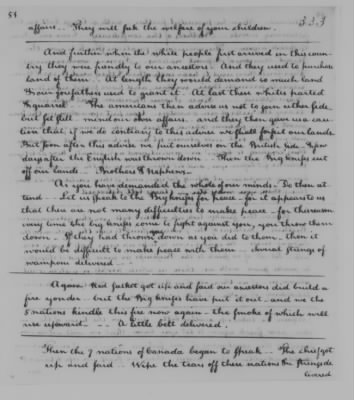 54
323
affairs... They will seek the welfare of your children.
And further when the white people first arrived in this coun-
try they were friendly to our ancestors. And they used to purchase
land of them. At length they would demand so much land
& our forefathers used to grant it. At last these whites parted
& quarrel. The americans then advise us not to join either side,
but set still mend our own affairs. and they then give us a cau
tion that if we do contrary to this advice we shall forfeit our lands.
But soon after this advise we put ourselves on the British side. a few
days after the English was thrown down. Then the Big knifes cut
off our lands. Brothers & Nephews..
As you have demanded the whole of our minds. Do then at
tend. Let us speak to the Big knifes for peace. for it appears to us
that there are not many difficulties to make peace. for the reason
every time the Big knifes come to fight against you, you throw them
down. If they had thrown you down as you did to them. then it
would be difficult to make peace with them. several strings of
wampum delivered
Again Red Jacket got up and said our ancestors did build a
fire yonder. but the Big knifes have put it out. and we the
5 nations kindle this fire now again. the smoke of which will
rise upward. A little belt delivered.
Then the 7 nations of Canada began to speak. The chief got
up and said. Wipe the tears off these nations six strings de
livered